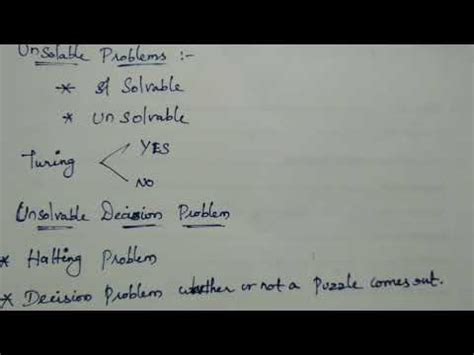 Unsolable Problems :-
* Solvable
* Unsolvable
Turing
YES
NO
Unsolvable Decision Problem
* Halting Problem
* Decision Problem whether or not a Puzzle comes out.